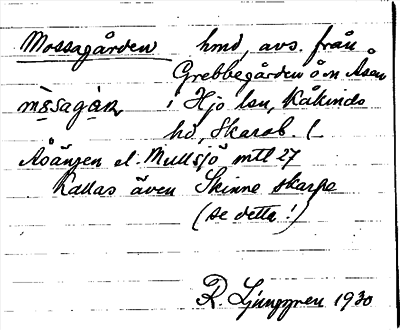 Mossagården hmd, avs. från
Grebbegården o. n. Åsen
i Hjo lsn, Kåkinds
hd, Skarab. l.
Åsängen el. Mullsjö mtl 27
Kallas även Skinne skarpe
(se detta!)
R. Ljunggren 1930